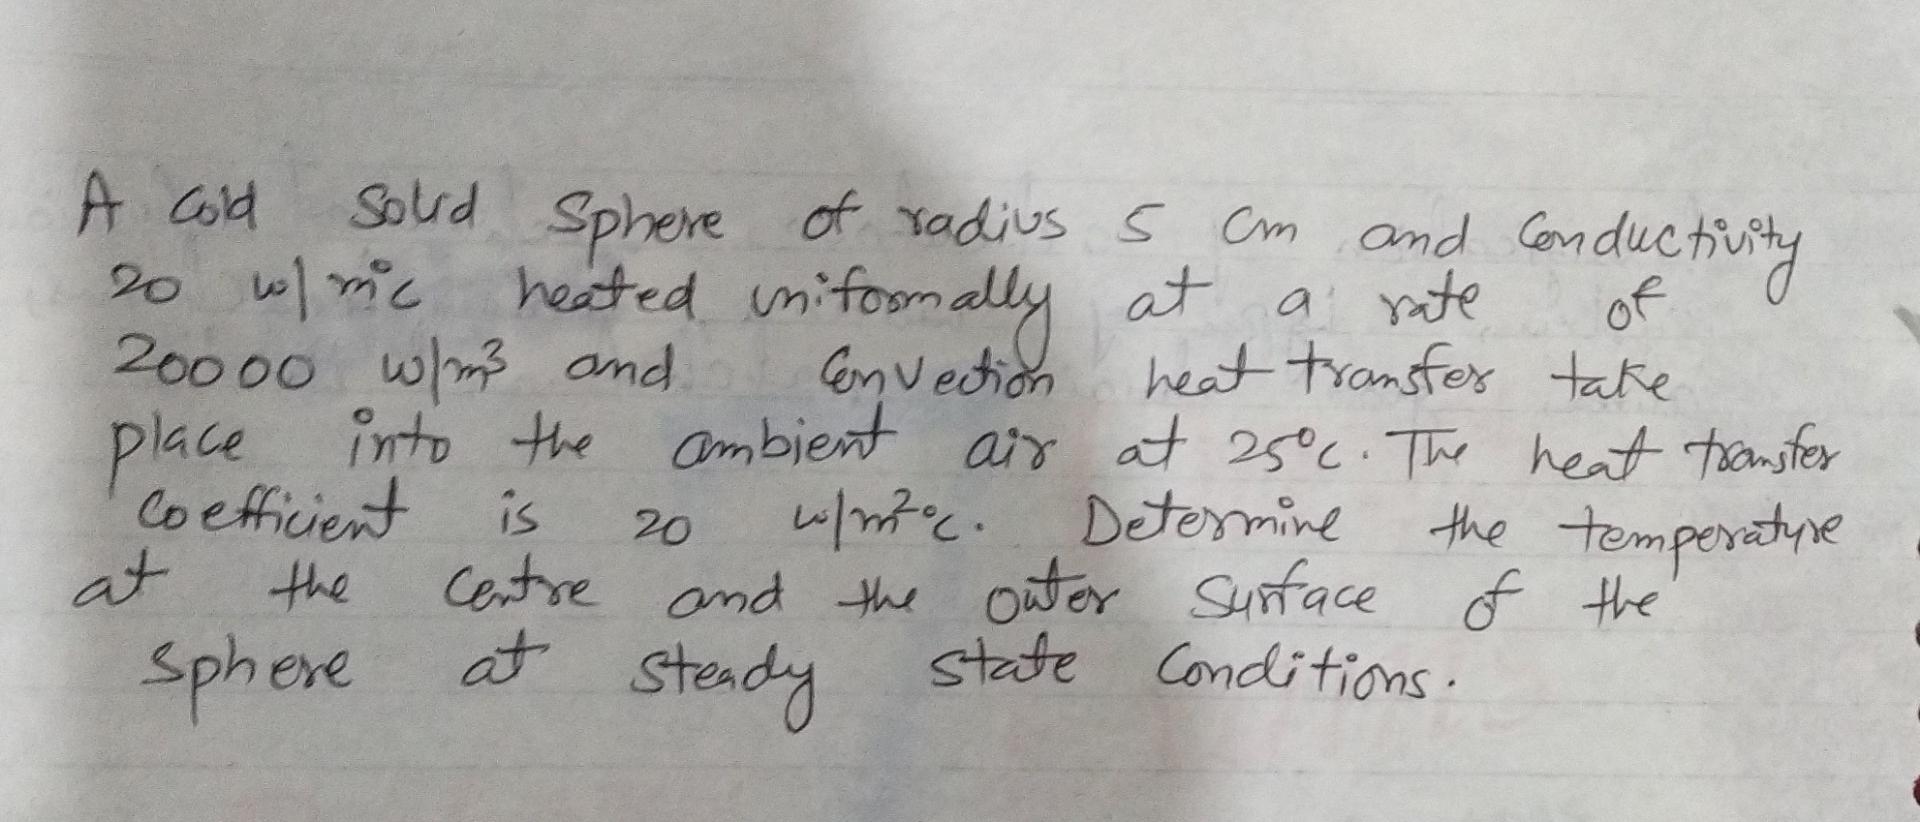 A cold solid sphere of radius 5 cm and conductivity
20 w/m°c heated uniformally at a rate of
20000 w/m³ and convection heat transfer take
place into the ambient air at 25°c. The heat transfer
coefficient is 20 w/m²°c. Determine the temperature
at the centre and the outer surface of the
sphere at steady state conditions.